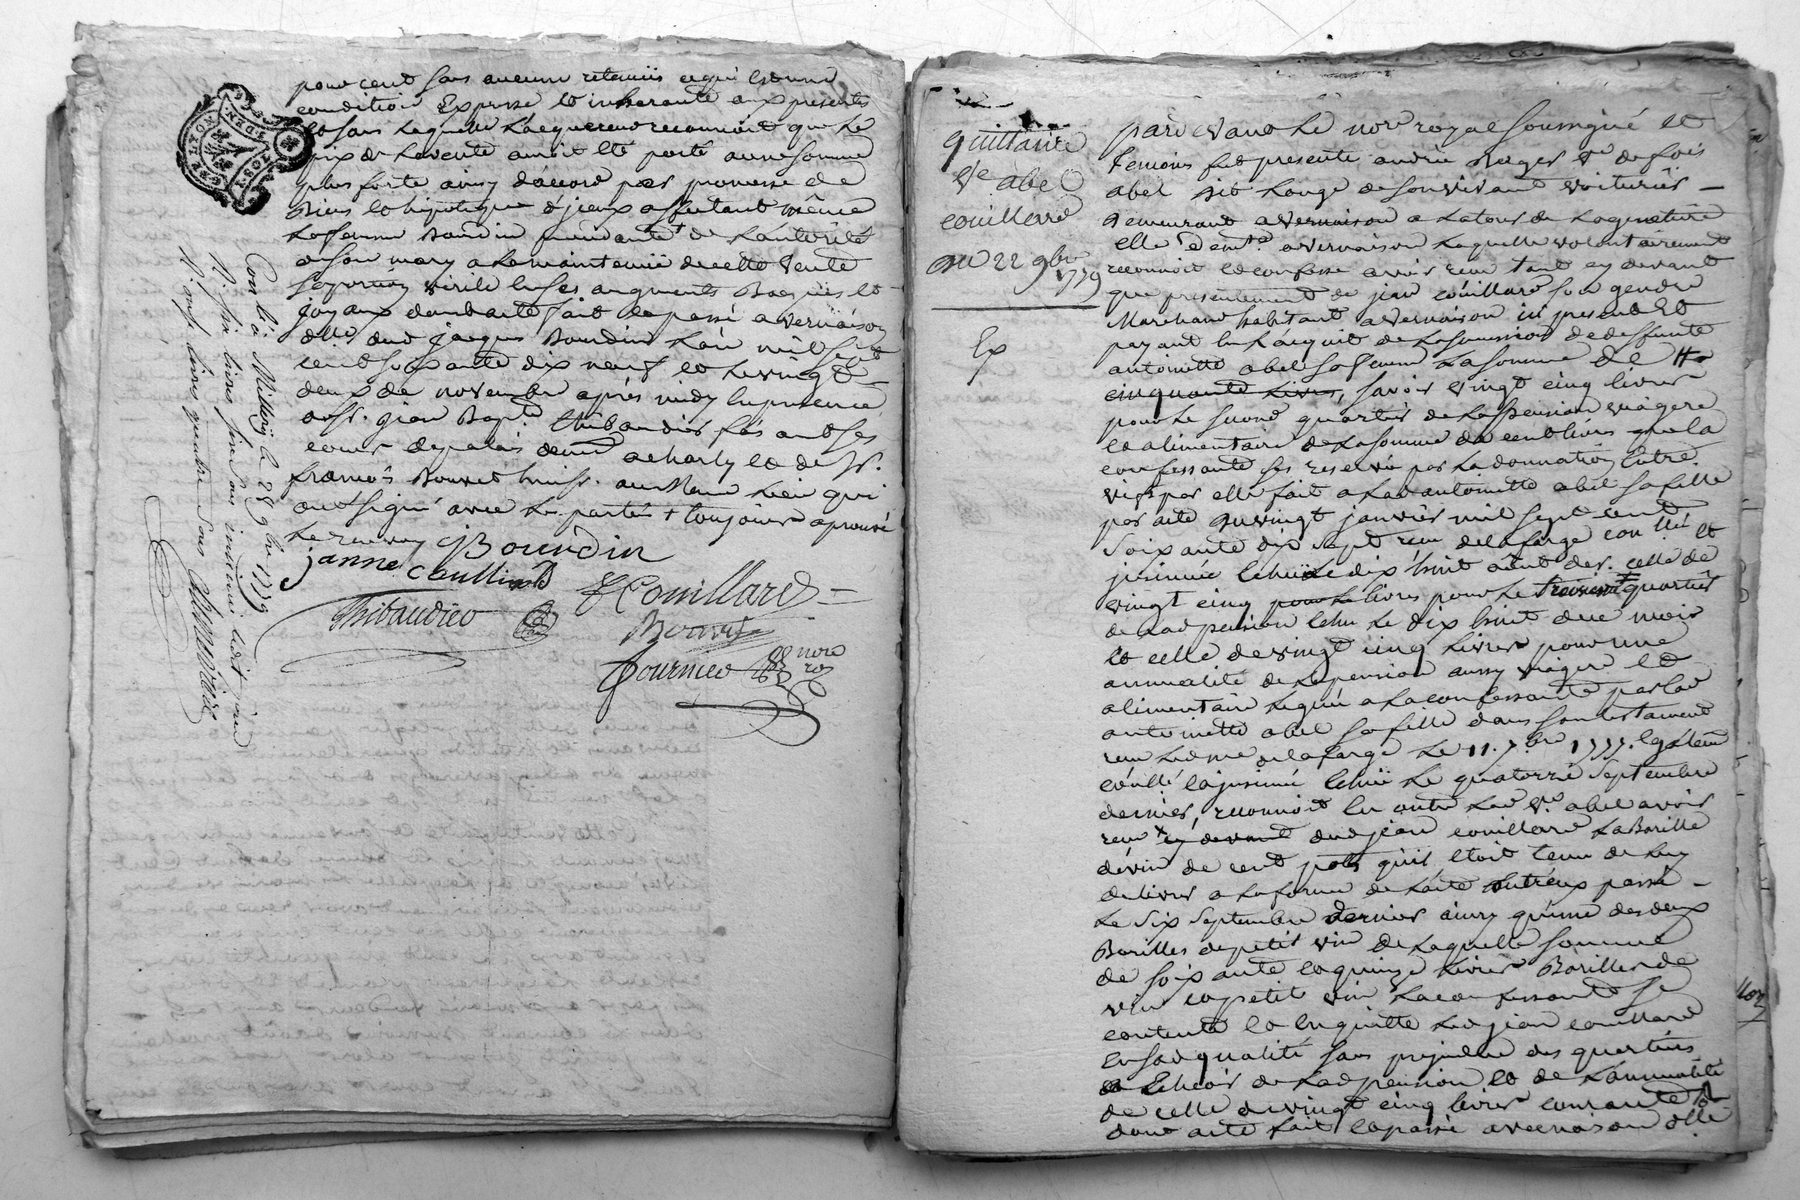 pour cent sans aucune retenüe ce qui est une
condition Expresse et inherante aux presentes
et sans laquelle l'acquereur reconnoit que le
prix de la vente auroit été porté a une somme
plus forte ainsy d'accord par promesse de
Biens et hipoteque & jceux affectant même
la femme Bourdin procedante de l'autorité
de son mary a la maintenüe de cette vente
sa portion virile et ses augments Bagues et
joyaux dont acte fait et passé a vernaison
dlle dud jacques Bourdin l'an mil sept
cent soixante dix neuf et le vingt
deux de novembre après midy en presence
de sr. jean Bapte. thibaudier
cour de palais demt a charly et de sr.
françois Bouvet huissr. au meme lieu qui
ont signé avec les parties & toujours aprouvé
le renvoy
JBourdin
janne couillard
J Couillard
Thibaudier
Bouvet
fournier nore
roy
GEN DE LYON
Con lé a Millery le 28 9bre 1779
R. six livres
R. onze livres quatre sous
quittance
ve abel
couillard
du 22 9bre
1779
Ex
pardevant le nore royal soussigné et
temoins fut presente andrée Berger ve. de fois
abel dit l'ange de son vivant voiturier
demeurant a vernaison a la tour de la geneteiré
elle demte. a vernaison laquelle volontairement
reconnoit et confesse avoir reçu tant cy devant
que presentement de jean coüillard son gendre
Marchand habitant a vernaison ici present et
payant en l'acquit de la succession de deffunte
antoinette abel sa femme la somme de
cinquante livres, savoir vingt cinq livres
pour le second quartier de la pension viagere
et alimentaire de la somme de cent livres que la
confessante s'est reservée par la donnation entre
vifs par elle fait a lad antoinette abel sa fille
par acte du vingt janvier mil sept cent
soixante dix sept reçu delafarge con llé et
jnsinuée echüe le dix huit aout der. celle de
vingt cinq pour le livres pour le troisieme quartier
de lad pension echu le dix huit du c. mois
et celle de vingt cinq livres pour une
annualité de la pension aussy viagere et
alimentaire leguée a la confessante par lad
antoinette abel sa fille dans son testament
reçu led me delafarge le 11. 7.bre 1777.
con llé et jnsinué echüe le quatorze septembre
dernier, reconnoit en outre lad ve. abel avoir
reçu cy devant dud jean couillard la Barille
de vin de cent pots qu'il etoit tenu de luy
delivrer a la forme de l'acte entr'eux passé
le six septembre dernier ainsy qu'une des deux
Barilles de petit vin de laquelle somme
de soixante et quinze livres Barilles de
vin et petit vin la confessante se
contente et en quitte led jean couillard
en sad qualité sans prejudice des quartiers
a Echeoir de lad pension et de l'annualité
de celle de vingt cinq livres courante
dont acte fait et passé a vernaison dlle